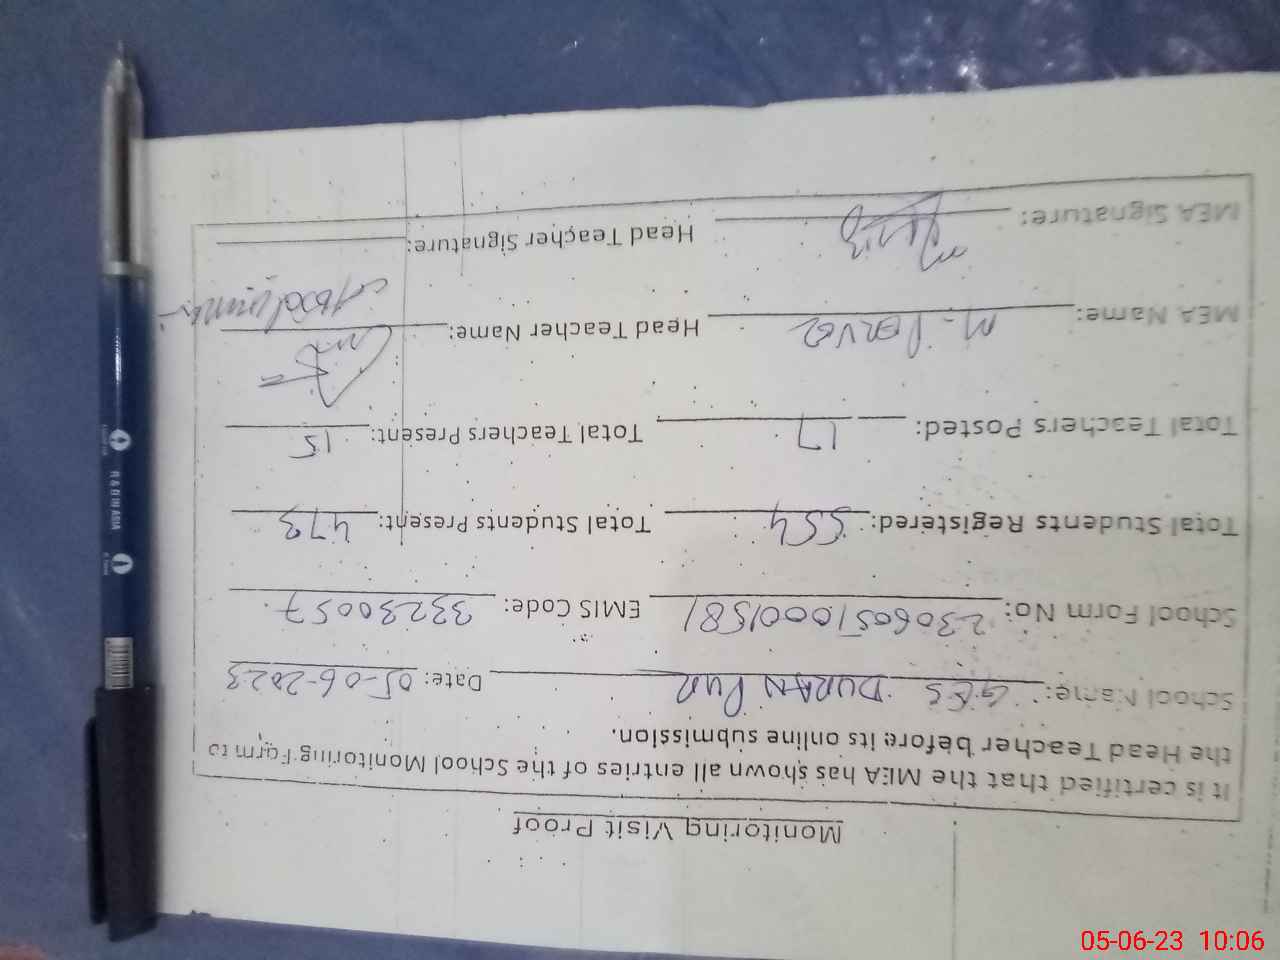 Monitoring Visit Proof
It is certified that the MEA has shown all entries of the School Monitoring Form to
the Head Teacher before its online submission.
School Name: GES DURAN PUR Date: 05-06-2023
School Form No: 23060510001581 EMIS Code: 33230057
Total Students Registered: 554 Total Students Present: 473
Total Teachers Posted: 17 Total Teachers Present: 15
MEA Name: M. PERVEZ Head Teacher Name:
MEA Signature: Head Teacher Signature:
05-06-23 10:06